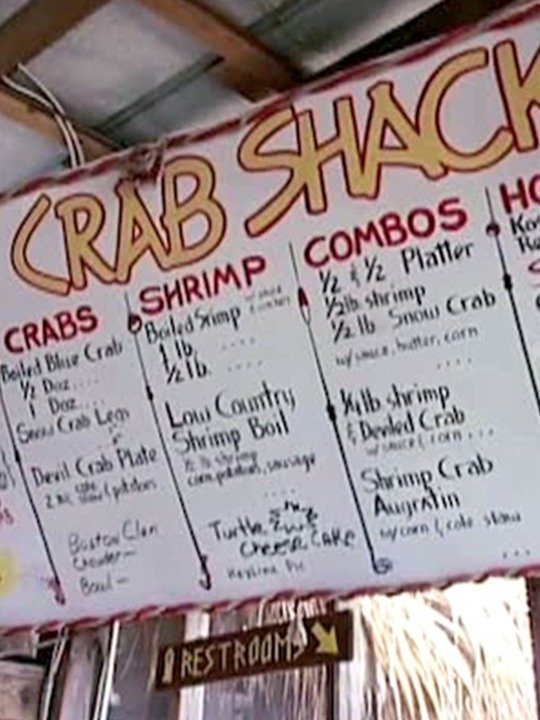 CRAB SHACK
CRABS
Boiled Blue Crab
1/2 Doz....
1 Doz....
Snow Crab Legs
Devil Crab Plate
2 slaw/potatoes
Boston Clam
Chowder—
Bowl—
SHRIMP
Boiled Srimp
1 lb. ....
1/2 lb. ....
Low Country
Shrimp Boil
1/2 lb shrimp
corn, potatoes, sausage
....
Turtle
Cheese Cake
Keylime Pie
COMBOS
1/2 & 1/2 Platter
1/2lb shrimp
1/2 lb Snow Crab
w/ sauce, butter, corn
....
1/4 lb shrimp
& Deviled Crab
w/ sauce, corn ...
Shrimp Crab
Augratin
w/ corn & cole slaw
...
HO
RESTROOMS